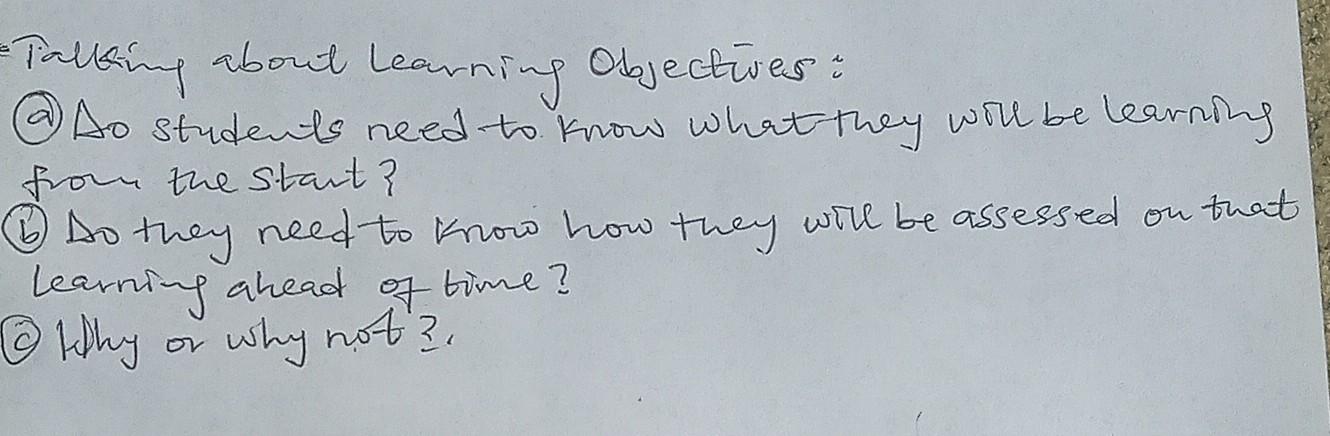 Talking about Learning Objectives:
ⓐ Do students need to know what they will be learning
from the start?
ⓑ Do they need to know how they will be assessed on that
learning ahead of time?
ⓒ Why or why not?.